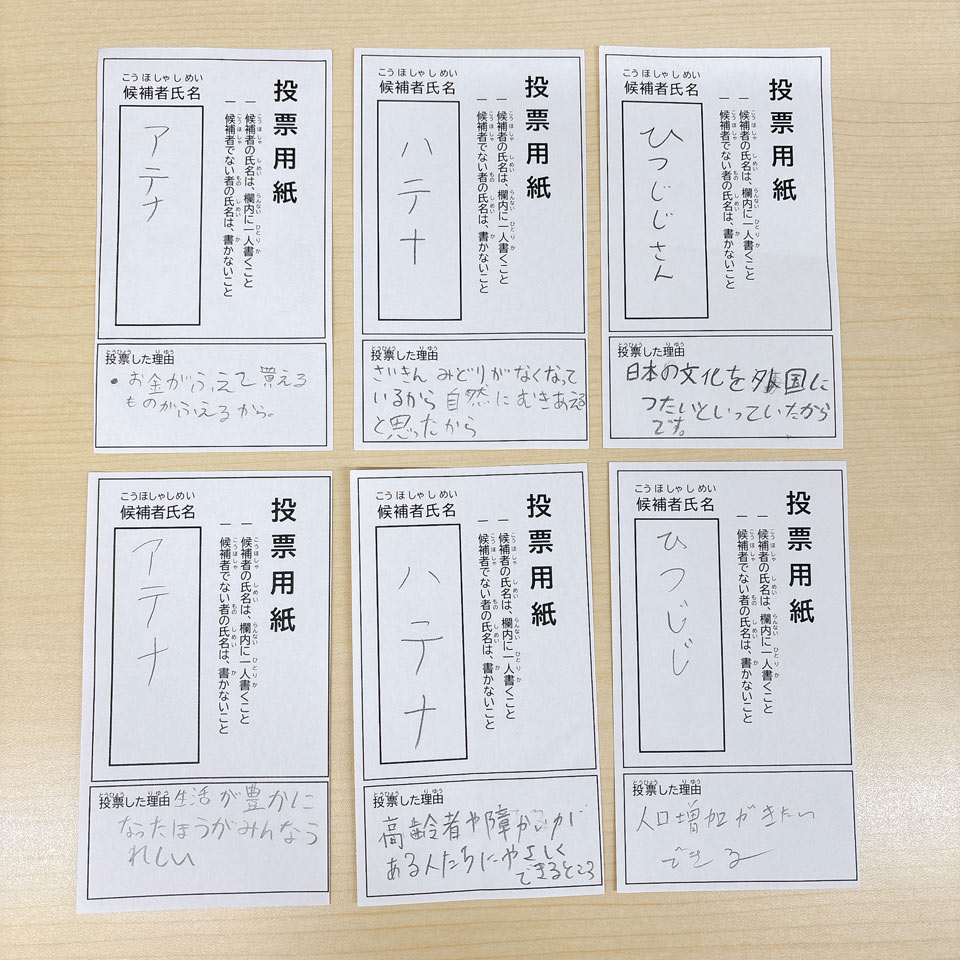 投票用紙
一 候補者の氏名は、欄内に一人書くこと
一 候補者でない者の氏名は、書かないこと
こうほしゃしめい
候補者氏名
アテナ
投票した理由
・お金がふえて買える
ものがふえるから。
投票用紙
一 候補者の氏名は、欄内に一人書くこと
一 候補者でない者の氏名は、書かないこと
こうほしゃしめい
候補者氏名
ハテナ
投票した理由
さいきん みどりがなくなって
いるから 自然にむきあえる
と思ったから
投票用紙
一 候補者の氏名は、欄内に一人書くこと
一 候補者でない者の氏名は、書かないこと
こうほしゃしめい
候補者氏名
ひつじじさん
投票した理由
日本の文化を外国に
つたいといっていたから
です。
投票用紙
一 候補者の氏名は、欄内に一人書くこと
一 候補者でない者の氏名は、書かないこと
こうほしゃしめい
候補者氏名
アテナ
投票した理由 生活が豊かに
なったほうがみんなう
れしい
投票用紙
一 候補者の氏名は、欄内に一人書くこと
一 候補者でない者の氏名は、書かないこと
こうほしゃしめい
候補者氏名
ハテナ
投票した理由
高齢者や障がいが
ある人たちにやさしく
できるところ
投票用紙
一 候補者の氏名は、欄内に一人書くこと
一 候補者でない者の氏名は、書かないこと
こうほしゃしめい
候補者氏名
ひつじじ
投票した理由
人口増加がきたい
できる